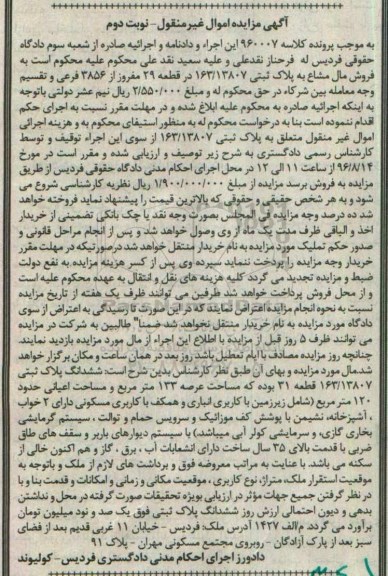 آگهی مزایده اموال غیرمنقول- نوبت دوم
به موجب پرونده کلاسه ۹۶۰۰۰۷ این اجراء و دادنامه و اجرائیه صادره از شعبه سوم دادگاه
حقوقی فردیس له فرحناز نقدعلی و علیه سعید نقد علی محکوم علیه محکوم است به
فروش مال مشاع به پلاک ثبتی ۱۶۳/۱۳۸۰۷ در قطعه ۲۹ مفروز از ۳۸۵۶ فرعی و تقسیم
وجه معامله بین شرکاء در حق محکوم له و مبلغ ۲/۵۵۰/۰۰۰ ریال نیم عشر دولتی باتوجه
به اینکه اجرائیه صادره به محکوم علیه ابلاغ شده و در مهلت مقرر نسبت به اجرای حکم
اقدام ننموده است بنا به درخواست محکوم له به منظور استیفای محکوم به و هزینه اجرائی
اموال غیر منقول متعلق به پلاک ثبتی ۱۶۳/۱۳۸۰۷ از سوی این اجراء توقیف و توسط
کارشناس رسمی دادگستری به شرح زیر توصیف و ارزیابی شده و مقرر است در مورخ
۹۶/۸/۱۴ از ساعت ۱۱ الی ۱۲ در محل اجرای احکام مدنی دادگاه حقوقی فردیس از طریق
مزایده به فروش برسد مزایده از مبلغ ۱/۹۰۰/۰۰۰/۰۰۰ ریال نظریه کارشناسی شروع می
شود و به هر شخص حقیقی و حقوقی که بالاترین قیمت را پیشنهاد نماید فروخته خواهد
شد ده درصد وجه مزایده فی المجلس بصورت وجه نقد یا چک بانکی تضمینی از خریدار
اخذ و الباقی ظرف مدت یک ماه از وی وصول خواهد شد و پس از انجام مراحل قانونی و
صدور حکم تملیک مورد مزایده به نام خریدار منتقل خواهد شد درصورتیکه در مهلت مقرر
خریدار وجه مزایده را پرداخت ننماید سپرده وی پس از کسر هزینه مزایده به نفع دولت
ضبط و مزایده تجدید می گردد کلیه هزینه های نقل و انتقال به عهده محکوم علیه است
و از محل فروش پرداخت خواهد شد طرفین می توانند ظرف یک هفته از تاریخ مزایده
نسبت به نحوه انجام مزایده اعتراض نمایند که در این صورت تا رسیدگی به اعتراض از سوی
دادگاه مورد مزایده به نام خریدار منتقل نخواهد شد ضمنا" طالبین به شرکت در مزایده
می توانند ظرف ۵ روز قبل از مزایده با اطلاع این اجراء از مال مورد مزایده بازدید نمایند.
چنانچه روز مزایده مصادف با ایام تعطیل باشد روز بعد در همان ساعت و مکان برگزار خواهد
شد.مال مورد مزایده و بهای آن طبق نظر کارشناس بدین شرح است: ششدانگ پلاک ثبتی
۱۶۳/۱۳۸۰۷ قطعه ۳۱ بوده که مساحت عرصه ۱۳۳ متر مربع و مساحت اعیانی حدود
۱۲۰ متر مربع (شامل زیرزمین با کاربری انباری و همکف با کاربری مسکونی دارای ۲ خواب
، آشپزخانه، نشیمن با پوشش کف موزائیک و سرویس حمام و توالت ، سیستم گرمایشی
بخاری گازی، و سرمایشی کولر آبی میباشد) با سیستم دیوارهای باربر و سقف های طاق
ضربی با قدمت بالای ۳۵ سال ساخت دارای انشعابات آب ، برق ، گاز و هم اکنون خالی از
سکنه می باشد. با عنایت به مراتب معروضه فوق و برداشت های لازم از ملک و باتوجه به
موقعیت استقرار ملک، متراژ، نوع کاربری ، موقعیت مکانی و زمانی و امکانات و قدمت بنا و با
در نظر گرفتن جمیع جهات مؤثر در ارزیابی بویژه تحقیقات صورت گرفته در محل و نداشتن
بدهی و دیون احتمالی ارزش روز ششدانگ پلاک ثبتی فوق یک صد و نود میلیون تومان
برآورد می گردد. م/الف ۱۴۲۷ آدرس ملک: فردیس - خیابان ۱۱ غربی قدیم بعد از فضای
سبز بعد از پارک آزادگان - روبروی مجتمع مسکونی مهران - پلاک ۹۱
دادورز اجرای احکام مدنی دادگستری فردیس- کولیوند